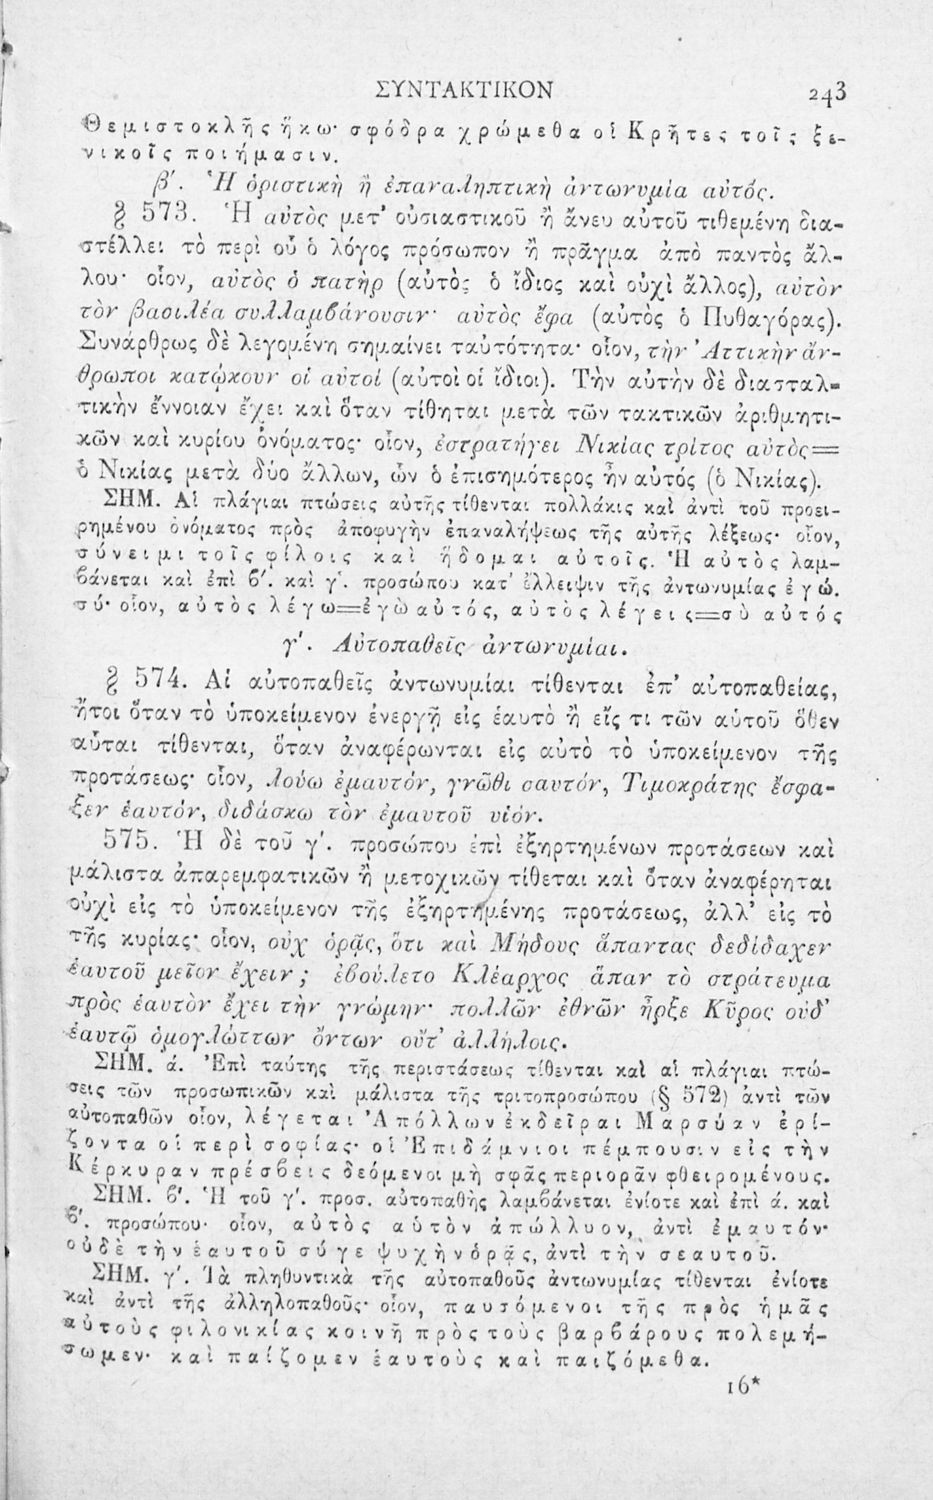 ΣΥΝΤΑΚΤΙΚΟΝ 243
Θεμιστοκλῆς ἥκω· σφόδρα χρώμεθα οἱ Κρῆτες τοῖς ξε-
νικοῖς ποιήμασιν.
β'. Ἡ ὁριστικὴ ἢ ἐπαναληπτικὴ ἀντωνυμία αὐτός.
§ 573. Ἡ αὐτὸς μετ' οὐσιαστικοῦ ἢ ἄνευ αὐτοῦ τιθεμένη δια-
στέλλει τὸ περὶ οὗ ὁ λόγος πρόσωπον ἢ πρᾶγμα ἀπὸ παντὸς ἄλ-
λου· οἷον, αὐτὸς ὁ πατὴρ (αὐτὸς ὁ ἴδιος καὶ οὐχὶ ἄλλος), αὐτὸν
τὸν βασιλέα συλλαμβάνουσιν· αὐτὸς ἔφα (αὐτὸς ὁ Πυθαγόρας).
Συνάρθρως δὲ λεγομένη σημαίνει ταὐτότητα· οἷον, τὴν Ἀττικὴν ἄν-
θρωποι κατῴκουν οἱ αὐτοί (αὐτοὶ οἱ ἴδιοι). Τὴν αὐτὴν δὲ διασταλ-
τικὴν ἔννοιαν ἔχει καὶ ὅταν τίθηται μετὰ τῶν τακτικῶν ἀριθμητι-
κῶν καὶ κυρίου ὀνόματος· οἷον, ἐστρατήγει Νικίας τρίτος αὐτὸς=
ὁ Νικίας μετὰ δύο ἄλλων, ὧν ὁ ἐπισημότερος ἦν αὐτός (ὁ Νικίας).
ΣΗΜ. Αἱ πλάγιαι πτώσεις αὐτῆς τίθενται πολλάκις καὶ ἀντὶ τοῦ προει-
ρημένου ὀνόματος πρὸς ἀποφυγὴν ἐπαναλήψεως τῆς αὐτῆς λέξεως· οἷον,
σύνειμι τοῖς φίλοις καὶ ἥδομαι αὐτοῖς. Ἡ αὐτὸς λαμ-
βάνεται καὶ ἐπὶ β'. καὶ γ'. προσώπου κατ' ἔλλειψιν τῆς ἀντωνυμίας ἐγώ.
σύ· οἷον, αὐτὸς λέγω=ἐγὼ αὐτός, αὐτὸς λέγεις=σὺ αὐτός
γ'. Αὐτοπαθεῖς ἀντωνυμίαι.
§ 574. Αἱ αὐτοπαθεῖς ἀντωνυμίαι τίθενται ἐπ' αὐτοπαθείας,
ἤτοι ὅταν τὸ ὑποκείμενον ἐνεργῇ εἰς ἑαυτὸ ἢ εἴς τι τῶν αὑτοῦ ὅθεν
αὗται τίθενται, ὅταν ἀναφέρωνται εἰς αὐτὸ τὸ ὑποκείμενον τῆς
προτάσεως· οἷον, λούω ἐμαυτόν, γνῶθι σαυτόν, Τιμοκράτης ἔσφα-
ξεν ἑαυτόν, διδάσκω τὸν ἐμαυτοῦ υἱόν.
575. Ἡ δὲ τοῦ γ'. προσώπου ἐπὶ ἐξηρτημένων προτάσεων καὶ
μάλιστα ἀπαρεμφατικῶν ἢ μετοχικῶν τίθεται καὶ ὅταν ἀναφέρηται
οὐχὶ εἰς τὸ ὑποκείμενον τῆς ἐξηρτημένης προτάσεως, ἀλλ' εἰς τὸ
τῆς κυρίας· οἷον, οὐχ ὁρᾷς, ὅτι καὶ Μήδους ἅπαντας δεδίδαχεν
ἑαυτοῦ μεῖον ἔχειν ; ἐβούλετο Κλέαρχος ἅπαν τὸ στράτευμα
πρὸς ἑαυτὸν ἔχει τὴν γνώμην· πολλῶν ἐθνῶν ἦρξε Κῦρος οὐδ'
ἑαυτῷ ὁμογλώττων ὄντων οὔτ' ἀλλήλοις.
ΣΗΜ. ά. Ἐπὶ ταύτης τῆς περιστάσεως τίθενται καὶ αἱ πλάγιαι πτώ-
σεις τῶν προσωπικῶν καὶ μάλιστα τῆς τριτοπροσώπου (§ 572) ἀντὶ τῶν
αὐτοπαθῶν οἷον, λέγεται Ἀπόλλων ἐκδεῖραι Μαρσύαν ἐρί-
ζοντα οἱ περὶ σοφίας· οἱ Ἐπιδάμνιοι πέμπουσιν εἰς τὴν
Κέρκυραν πρέσβεις δεόμενοι μὴ σφᾶς περιορᾶν φθειρομένους.
ΣΗΜ. β'. Ἡ τοῦ γ'. προσ. αὐτοπαθὴς λαμβάνεται ἐνίοτε καὶ ἐπὶ ά. καὶ
β'. προσώπου· οἷον, αὐτὸς αὑτὸν ἀπώλλυον, ἀντὶ ἐμαυτόν·
οὐδὲ τὴν ἑαυτοῦ σύ γε ψυχὴν ὁρᾷς, ἀντὶ τὴν σεαυτοῦ.
ΣΗΜ. γ'. Τὰ πληθυντικὰ τῆς αὐτοπαθοῦς ἀντωνυμίας τίθενται ἐνίοτε
καὶ ἀντὶ τῆς ἀλληλοπαθοῦς· οἷον, παυσόμενοι τῆς πρὸς ἡμᾶς
αὐτοὺς φιλονικίας κοινῇ πρὸς τοὺς βαρβάρους πολεμή-
σωμεν· καὶ παίζομεν ἑαυτοὺς καὶ παιζόμεθα.
16*